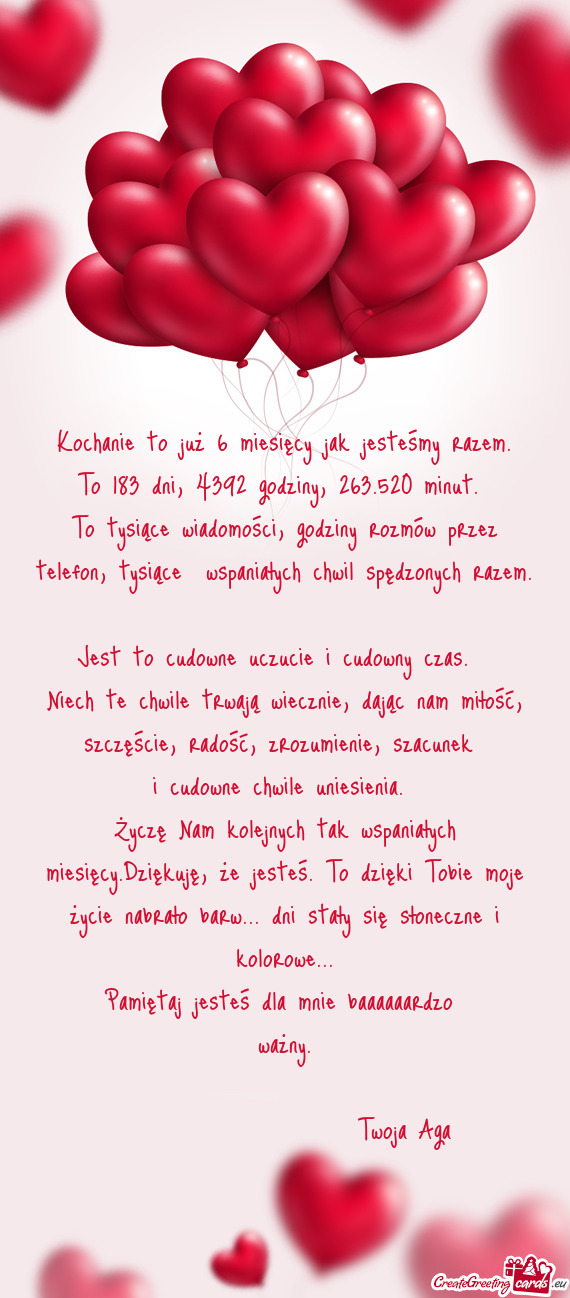 Kochanie to już 6 miesięcy jak jesteśmy razem.
To 183 dni, 4392 godziny, 263.520 minut.
To tysiące wiadomości, godziny rozmów przez
telefon, tysiące wspaniałych chwil spędzonych razem.
Jest to cudowne uczucie i cudowny czas.
Niech te chwile trwają wiecznie, dając nam miłość,
szczęście, radość, zrozumienie, szacunek
i cudowne chwile uniesienia.
Życzę Nam kolejnych tak wspaniałych
miesięcy.Dziękuję, że jesteś. To dzięki Tobie moje
życie nabrało barw... dni stały się słoneczne i
kolorowe...
Pamiętaj jesteś dla mnie baaaaaardzo
ważny.
Twoja Aga
CreateGreeting cards .eu